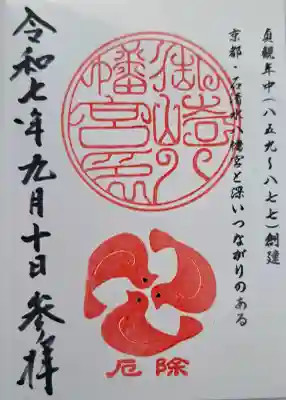 貞観年中(八五九〜八七七)創建
京都・石清水八幡宮と深いつながりのある
御崎八
幡宮印
厄除
令和七年九月十日 参拝